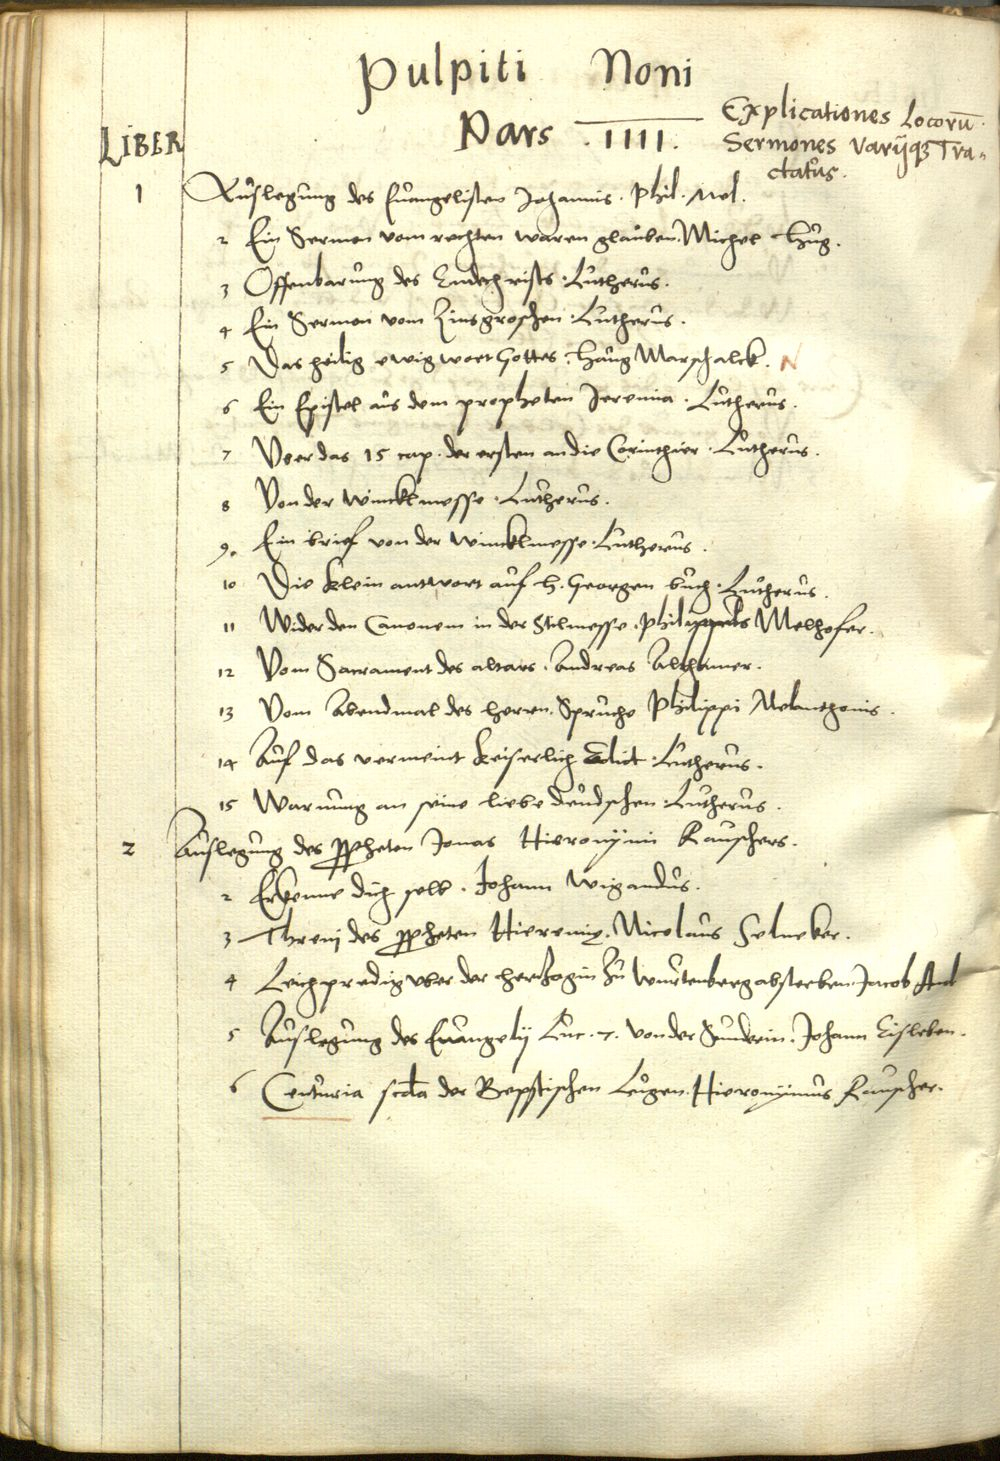 Pulpiti Noni
Pars IIII.
Explicationes Locorū
Sermones Varijqꝫ Tra-
ctatus.
LIBER
1 Auslegung des Euangelisten Johannis. Phil. Mel.
2 Ein Sermon vom rechten waren glauben. Michel Hug.
3 Offenbarung des Endechrists. Lutherus.
4 Ein Sermon vom Zinsgroschen. Lutherus.
5 Das heilig ewig wort Gottes. Haug Marschalck. N
6 Ein Epistel aus dem propheten Jeremia. Lutherus.
7 Vber das 15 cap. der ersten an die Corinthier. Lutherus.
8 Von der Winckelmesse. Lutherus.
9. Ein brief von der Winckelmesse. Lutherus.
10 Die klein antwort auf H. Georgen buch. Lutherus.
11 Wider den Canonem in der Stilmesse. Philippus Melhofer.
12 Vom Sacrament des altars. Andreas Althamer.
13 Vom Abendmal des Herren. Spruche Philippi Melanthonis.
14 Auf das vermeint keiserlich Edict. Lutherus.
15 Warnung an seine liebe deudschen. Lutherus.
2 Auslegung des ꝓpheten Jonas Hieronymi Rauschers.
2 Erkenne dich selb. Johann Wigandus.
3 Threnj des ꝓpheten Hieremię. Nicolaus Selneker.
4 Leichpredig vber der Hertzogin zu Wurtenberg absterben. Jacob And
5 Auslegung des Euangelij Luc. 7. von der Sunderin. Johann Eisleben.
6 Centuria scda der Bepstischen Lugen. Hieronymus Rauscher.